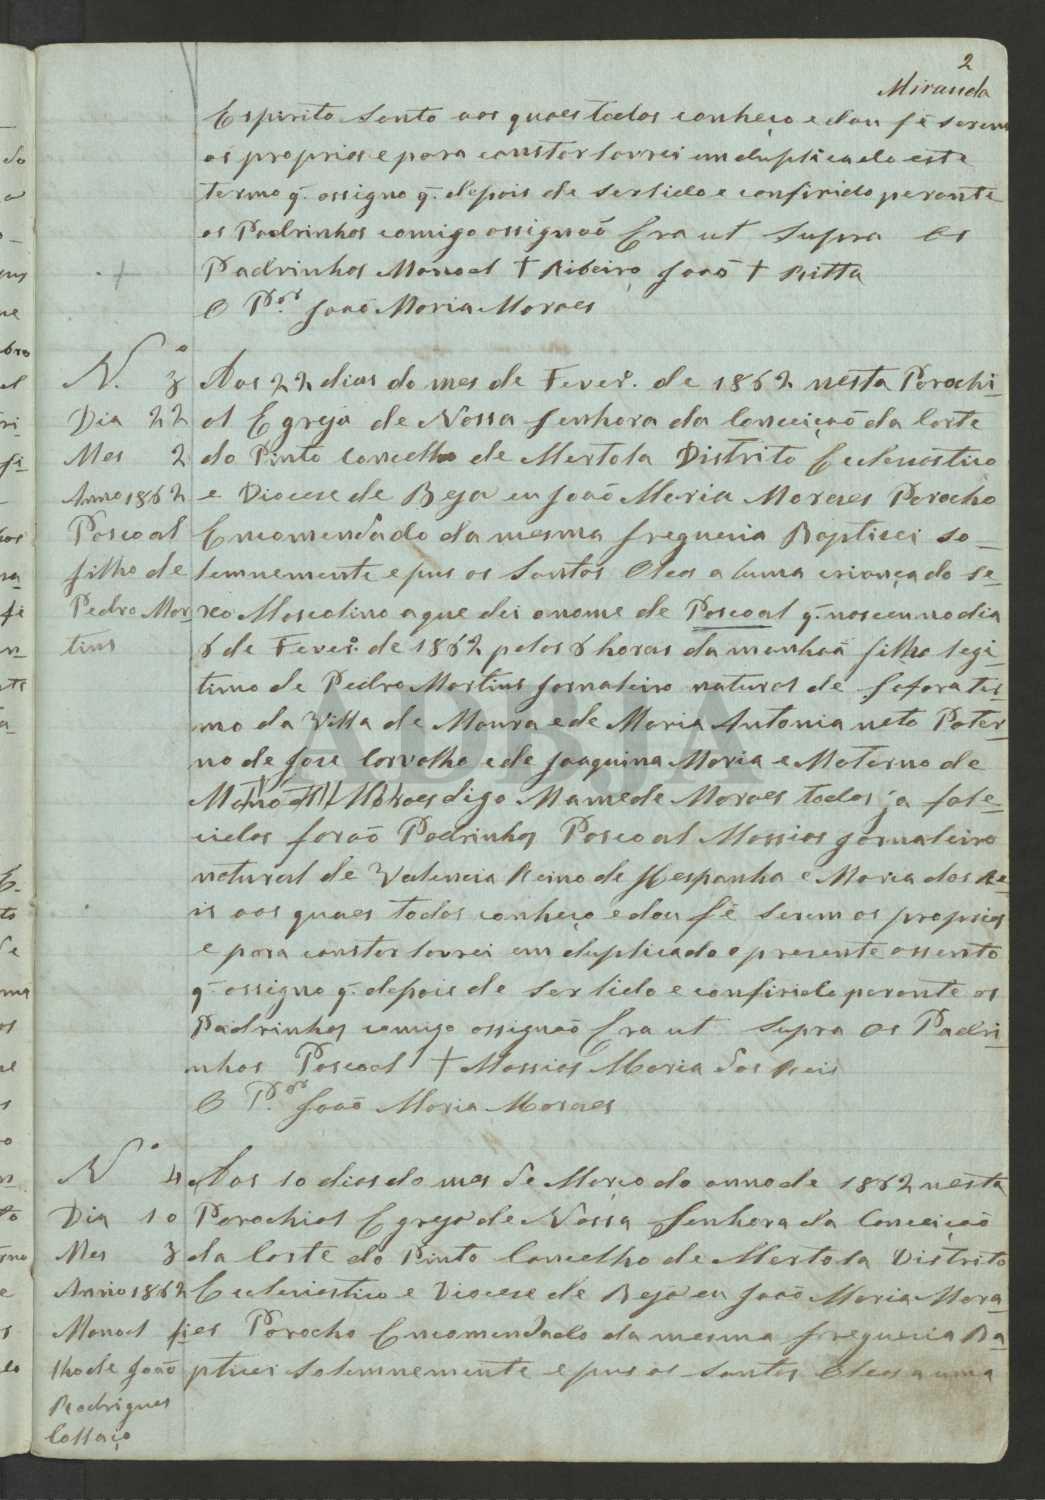 2
Miranda
Espirito Santo aos quaes todos conheço e dou fé serem
os proprios e para constar lavrei em duplicado este
termo q. assigno q. depois de ser lido e confirido perante
os Padrinhos comigo assignaõ Era ut Supra Os
Padrinhos Manoel † Ribeiro João † Ritta
O P.or João Maria Moraes
N.º 3
Dia 22
Mes 2
Anno 1862
Pascoal
filho de
Pedro Mar-
tins
Aos 22 dias do mes de Fever.º de 1862 nesta Parochi-
al Egreja de Nossa Senhora da Conceição da Corte
do Pinto Concelho de Mertola Distrito Eclesiastico
e Diocese de Beja eu João Maria Moraes Parocho
Encomendado da mesma freguezia Baptizei so-
lemnemente e pus os Santos Oleos a huma criança do se-
xo Mascolino a que dei o nome de Pascoal q. nasceu no dia
6 de Fever.º de 1862 pelas 6 horas da manhaã filho legi-
timo de Pedro Martins Jornaleiro natural de Safara ter-
mo da Villa de Moura e de Maria Antonia neto Pater-
no de Jose Carvalho e de Joaquina Maria e Materno de
Moraes digo Mamede Moraes todos ja fale-
cidos foraõ Padrinhos Pascoal Massias Jornaleiro
natural de Valencia Reino de Hespanha e Maria dos Re-
is aos quaes todos conheço e dou fé serem os proprios
e para constar lavrei em duplicado o presente assento
q. assigno q. depois de ser lido e confirido perante os
Padrinhos comigo assignaõ Era ut Supra Os Padri-
nhos Pascoal † Massias Maria dos Reis
O P.or João Maria Moraes
N.º 4
Dia 10
Mes 3
Anno 1862
Manoel fi-
lho de João
Rodrigues
Collaço
Aos 10 dias do mes de Março do anno de 1862 nesta
Parochial Egreja de Nossa Senhora da Conceição
da Corte do Pinto Concelho de Mertola Distrito
Eclesiastico e Diocese de Beja eu João Maria Mora-
es Parocho Encomendado da mesma freguezia Ba-
ptizei Solemnemente e pus os Santos Oleos a uma
ADBJA